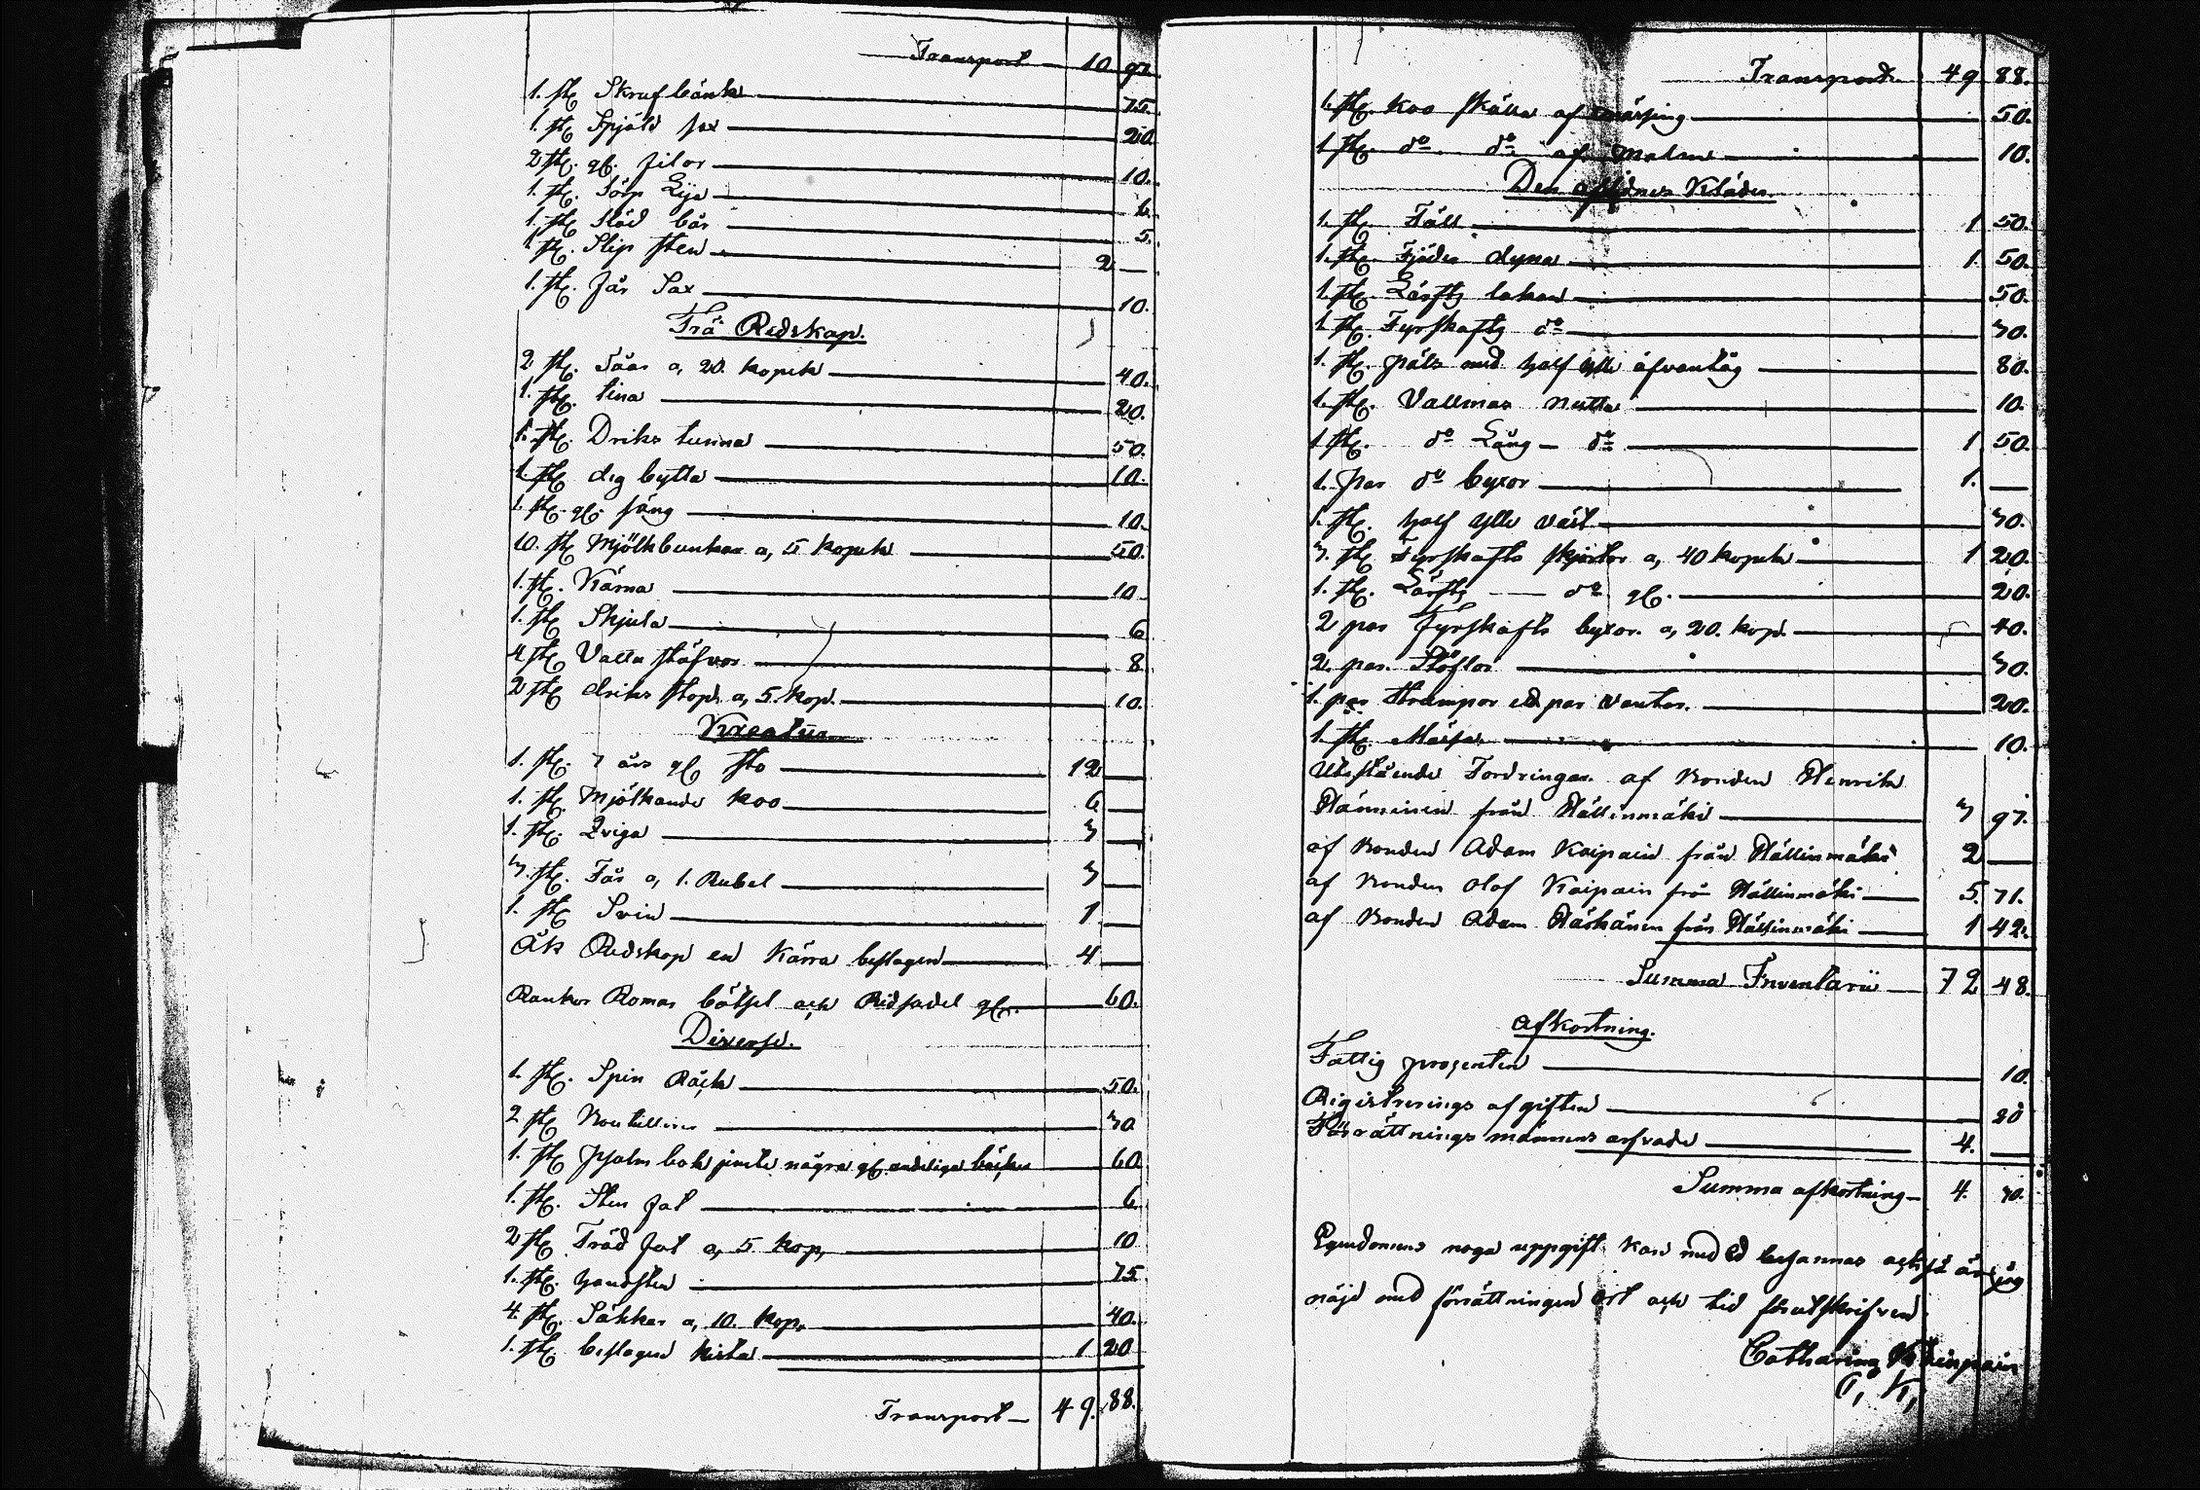 Transport — 10 97.
1. st. Skrufbänk — 75.
1. st. Spjäld sax — 20
2 st. gl. filar — 10.
1. st. Sörp Lya — 6.
1. st. Städ bår — 5.
1 st. Slip sten — 2 —
1. st. får Sax — 10.
Trä Redskap.
2 st. Såar a, 20. kopek — 40.
1. st. tina — 20.
1. st. Driks tunna — 50.
1. st. deg bytta — 10.
1. st. gl. säng — 10.
10. st. Mjölkbunkar a, 5 kopek — 50.
1. st. Kärna — 10
1. st. Skjula — 6
4 st. Valla stäfvor — 8
2 st. driks stop a, 5. kop. — 10.
Kreatur
1. st. 7 års gl. sto — 12 —
1. st. Mjölkande koo — 6 —
1. st. Qviga — 3 —
3. st. Får a, 1. Rubel — 3 —
1. st. Svin — 1 —
Åk Redskap en Kärra beslagen — 4 —
Rankor Romar bätsel och Ridsadel gl. — 60.
Diverse.
1. st. Spin Råck — 50.
2 st. Boutillier — 30
1. st. Psalm bok jemte några gl. andeliga böcker — 60
1. st. Sten fat — 6
2 st. Träd fat a, 5 kop, — 10
1. st. handsten — 75
4. st. Säkkar a, 10. kop. — 40.
1. st. beslagen kista — 1 20
Transport — 49. 88.
Transport 49 88.
1. st. koo skälla af mässing — 50.
1 st. do. do. af Malm — 10.
Den aflidnes Kläder.
1. st. Fäll — 1 50.
1. st. Fjäder dyna — 1. 50.
1 st. Lärfts lakan — 50.
1 st. Fyrskafts do — 30.
1. st. päls med half ylle öfvertåg — 80.
1. st. Vallmas mutta — 10.
1 st. do Lång — do — 1 50.
1. par do byxor — 1. —
1. st. half ylle väst — 30.
3. st. Fyrskafts skjortor a, 40 kopek — 1 20.
1. st. Lärfts — do gl. — 20.
2 par Fyrskafts byxor. a, 20. kop. — 40.
2. par. Stöflor — 30.
1. par strumpor ett par vantar. — 20.
1. st. Mössa — 10.
Utestående Fordringar. af Bonden Henrik
Hänninen från Hällinmäki — 3 97.
af Bonden Adam Kaipain från Hällinmäki 2 —
af Bonden Olof Kaipain från Hällinmäki — 5. 71.
af Bonden Adam Häkkänen från Hällinmäki — 1 42.
Summa Inventarii — 72 48.
Afkortning.
Fattig procenten — 10.
Registrerings afgiften — 20
Förrättnings männens arfvode — 4. —
Summa afkortning — 4. 30.
Egendomens noga uppgift kan med ed besannas och så är jag
nöjd med förrättningen ort och tid förutskrifven.
Catharina